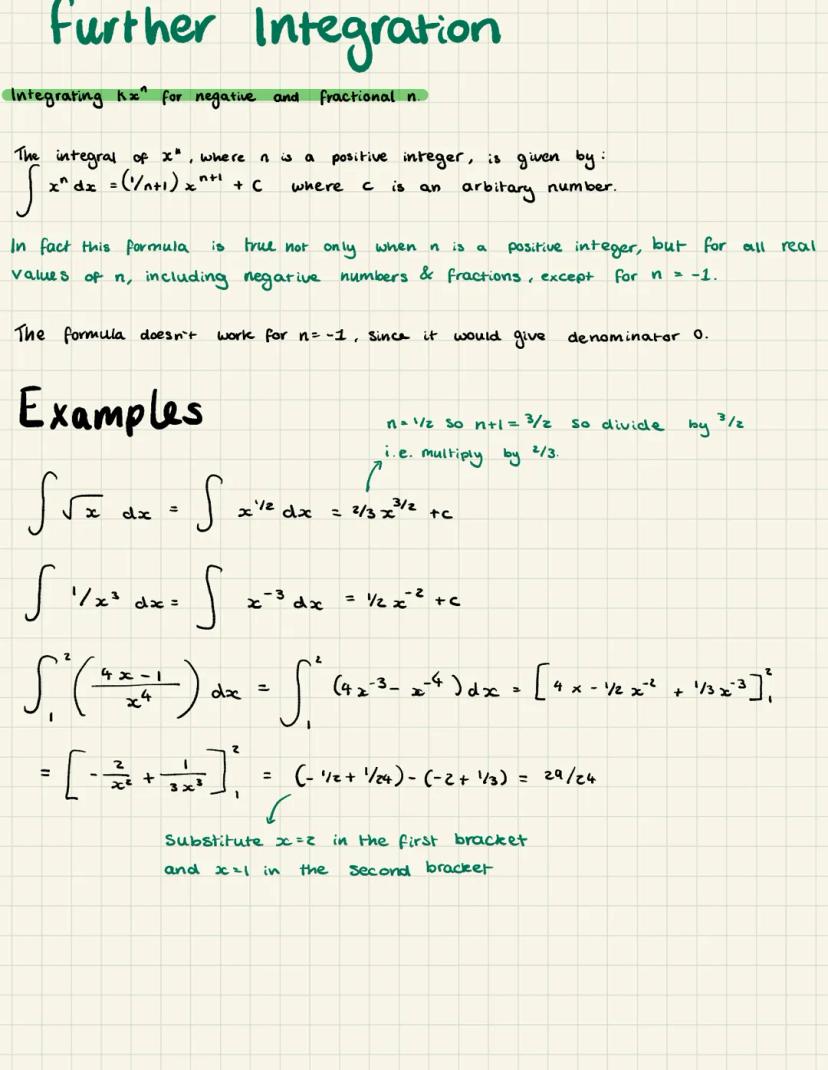 Further Integration
Integrating kxⁿ for negative and fractional n.
The integral of xⁿ, where n is a positive integer, is given by:
∫ xⁿ dx = (1/n+1) xⁿ⁺¹ + C where c is an arbitary number.
In fact this formula is true not only when n is a positive integer, but for all real
values of n, including negative numbers & fractions, except for n = -1.
The formula doesn't work for n= -1, since it would give denominator 0.
Examples
n= 1/2 so n+1 = 3/2 so divide by 3/2
i.e. multiply by 2/3.
∫ √x dx = ∫ x^1/2 dx = 2/3 x^3/2 +c
∫ 1/x³ dx = ∫ x⁻³ dx = 1/2 x⁻² +c
∫₁² (4x-1 / x⁴) dx = ∫₁² (4x⁻³ - x⁻⁴) dx = [4 x - 1/2 x⁻² + 1/3 x⁻³]₁²
= [- 2/x² + 1/3x³]₁² = (- 1/2 + 1/24) - (-2 + 1/3) = 29/24
Substitute x=2 in the first bracket
and x=1 in the second bracket